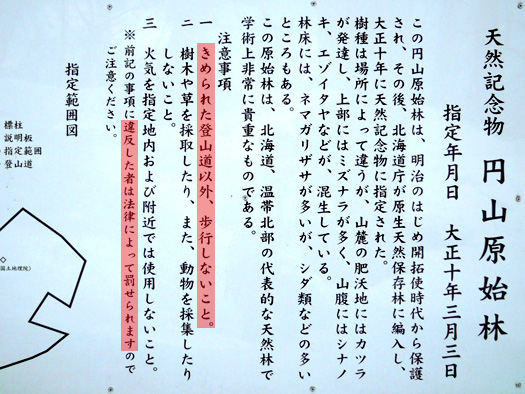 天然記念物 円山原始林
指定年月日 大正十年三月三日
この円山原始林は、明治のはじめ開拓使時代から保護
され、その後、北海道庁が原生天然保存林に編入し、
大正十年に天然記念物に指定された。
樹種は場所によって違うが、山麓の肥沃地にはカツラ
が発達し、上部にはミズナラが多く、山腹にはシナノ
キ、エゾイタヤなどが、混生している。
林床には、ネマガリザサが多いが、シダ類などの多い
ところもある。
この原始林は、北海道、温帯北部の代表的な天然林で
学術上非常に貴重なものである。
注意事項
一 きめられた登山道以外、歩行しないこと。
二 樹木や草を採取したり、また、動物を採集したり
しないこと。
三 火気を指定地内および附近では使用しないこと。
※前記の事項に違反した者は法律によって罰せられますので
ご注意ください。
指定範囲図
標柱
説明板
指定範囲
登山道
国土地理院)